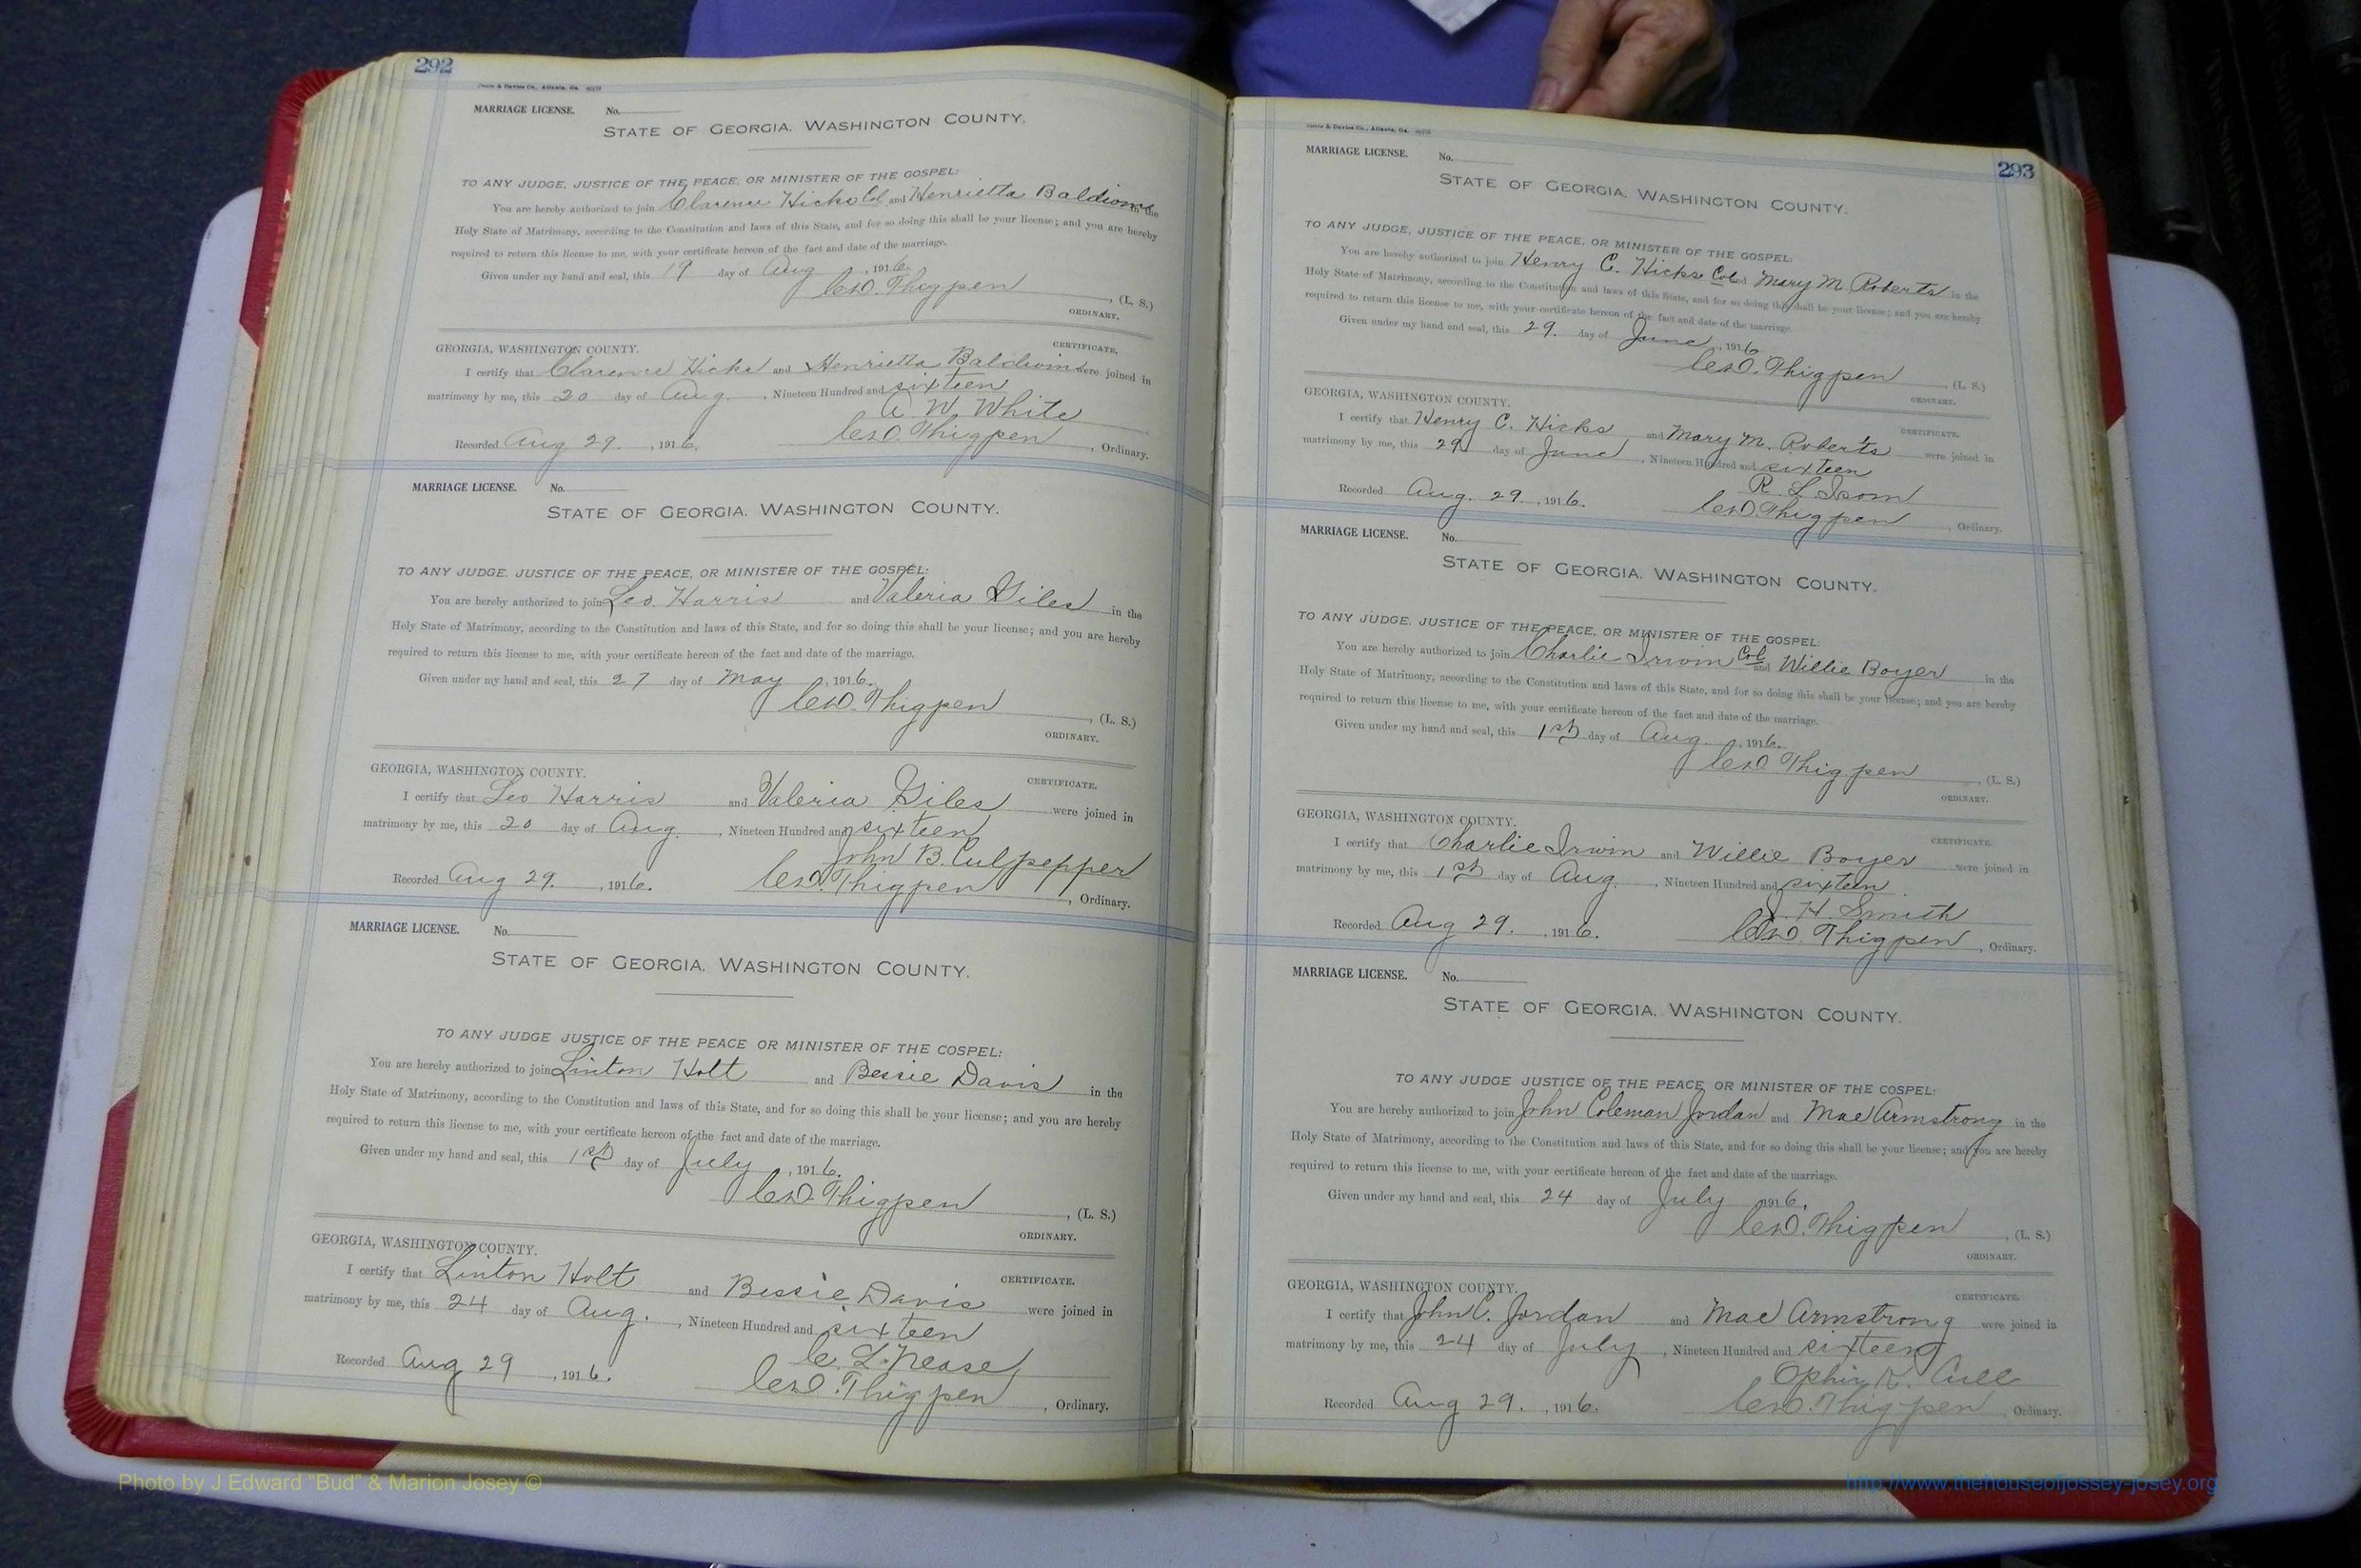 292
MARRIAGE LICENSE. No.
STATE OF GEORGIA. WASHINGTON COUNTY.
TO ANY JUDGE, JUSTICE OF THE PEACE, OR MINISTER OF THE GOSPEL:
You are hereby authorized to join Clarence Hicks Col and Henrietta Baldwin in the
Holy State of Matrimony, according to the Constitution and laws of this State, and for so doing this shall be your license; and you are hereby
required to return this license to me, with your certificate hereon of the fact and date of the marriage.
Given under my hand and seal, this 19 day of Aug , 1916.
Thigpen , (L. S.)
ORDINARY.
GEORGIA, WASHINGTON COUNTY. CERTIFICATE.
I certify that Clarence Hicks and Henrietta Baldwin were joined in
matrimony by me, this 20 day of Aug. , Nineteen Hundred and sixteen
A. W. White
Recorded Aug 29. , 1916. Thigpen , Ordinary.
MARRIAGE LICENSE. No.
STATE OF GEORGIA. WASHINGTON COUNTY.
TO ANY JUDGE, JUSTICE OF THE PEACE, OR MINISTER OF THE GOSPEL:
You are hereby authorized to join Leo Harris and Valeria Giles in the
Holy State of Matrimony, according to the Constitution and laws of this State, and for so doing this shall be your license; and you are hereby
required to return this license to me, with your certificate hereon of the fact and date of the marriage.
Given under my hand and seal, this 27 day of May , 1916.
Thigpen , (L. S.)
ORDINARY.
GEORGIA, WASHINGTON COUNTY. CERTIFICATE.
I certify that Leo Harris and Valeria Giles were joined in
matrimony by me, this 20 day of Aug. , Nineteen Hundred and sixteen
John B. Culpepper
Recorded Aug 29. , 1916. Thigpen , Ordinary.
MARRIAGE LICENSE. No.
STATE OF GEORGIA. WASHINGTON COUNTY.
TO ANY JUDGE JUSTICE OF THE PEACE OR MINISTER OF THE GOSPEL:
You are hereby authorized to join Linton Holt and Bessie Davis in the
Holy State of Matrimony, according to the Constitution and laws of this State, and for so doing this shall be your license; and you are hereby
required to return this license to me, with your certificate hereon of the fact and date of the marriage.
Given under my hand and seal, this 1st day of July , 1916.
Thigpen , (L. S.)
ORDINARY.
GEORGIA, WASHINGTON COUNTY. CERTIFICATE.
I certify that Linton Holt and Bessie Davis were joined in
matrimony by me, this 24 day of Aug. , Nineteen Hundred and sixteen
C. L. Nease
Recorded Aug 29 , 1916. Thigpen , Ordinary.
293
MARRIAGE LICENSE. No.
STATE OF GEORGIA. WASHINGTON COUNTY.
TO ANY JUDGE, JUSTICE OF THE PEACE, OR MINISTER OF THE GOSPEL:
You are hereby authorized to join Henry C. Hicks Col and Mary M Roberts in the
Holy State of Matrimony, according to the Constitution and laws of this State, and for so doing this shall be your license; and you are hereby
required to return this license to me, with your certificate hereon of the fact and date of the marriage.
Given under my hand and seal, this 29. day of June , 1916
Thigpen , (L. S.)
ORDINARY.
GEORGIA, WASHINGTON COUNTY. CERTIFICATE.
I certify that Henry C. Hicks and Mary M. Roberts were joined in
matrimony by me, this 29 day of June , Nineteen Hundred and sixteen
R. L Isom
Recorded Aug. 29. , 1916. Thigpen , Ordinary.
MARRIAGE LICENSE. No.
STATE OF GEORGIA. WASHINGTON COUNTY.
TO ANY JUDGE, JUSTICE OF THE PEACE, OR MINISTER OF THE GOSPEL:
You are hereby authorized to join Charlie Irwin Col and Willie Boyer in the
Holy State of Matrimony, according to the Constitution and laws of this State, and for so doing this shall be your license; and you are hereby
required to return this license to me, with your certificate hereon of the fact and date of the marriage.
Given under my hand and seal, this 1st day of Aug. , 1916.
Thigpen , (L. S.)
ORDINARY.
GEORGIA, WASHINGTON COUNTY. CERTIFICATE.
I certify that Charlie Irwin and Willie Boyer were joined in
matrimony by me, this 1st day of Aug. , Nineteen Hundred and sixteen
H. Smith
Recorded Aug 29. , 1916. Thigpen , Ordinary.
MARRIAGE LICENSE. No.
STATE OF GEORGIA. WASHINGTON COUNTY.
TO ANY JUDGE JUSTICE OF THE PEACE OR MINISTER OF THE GOSPEL:
You are hereby authorized to join John Coleman Jordan and Mae Armstrong in the
Holy State of Matrimony, according to the Constitution and laws of this State, and for so doing this shall be your license; and you are hereby
required to return this license to me, with your certificate hereon of the fact and date of the marriage.
Given under my hand and seal, this 24 day of July 1916.
Thigpen , (L. S.)
ORDINARY.
GEORGIA, WASHINGTON COUNTY. CERTIFICATE.
I certify that John C. Jordan and Mae Armstrong were joined in
matrimony by me, this 24 day of July , Nineteen Hundred and sixteen
Recorded Aug 29. , 1916. Thigpen , Ordinary.
Photo by J Edward "Bud" & Marion Josey ©
http://www.thehouseofjossey-josey.org